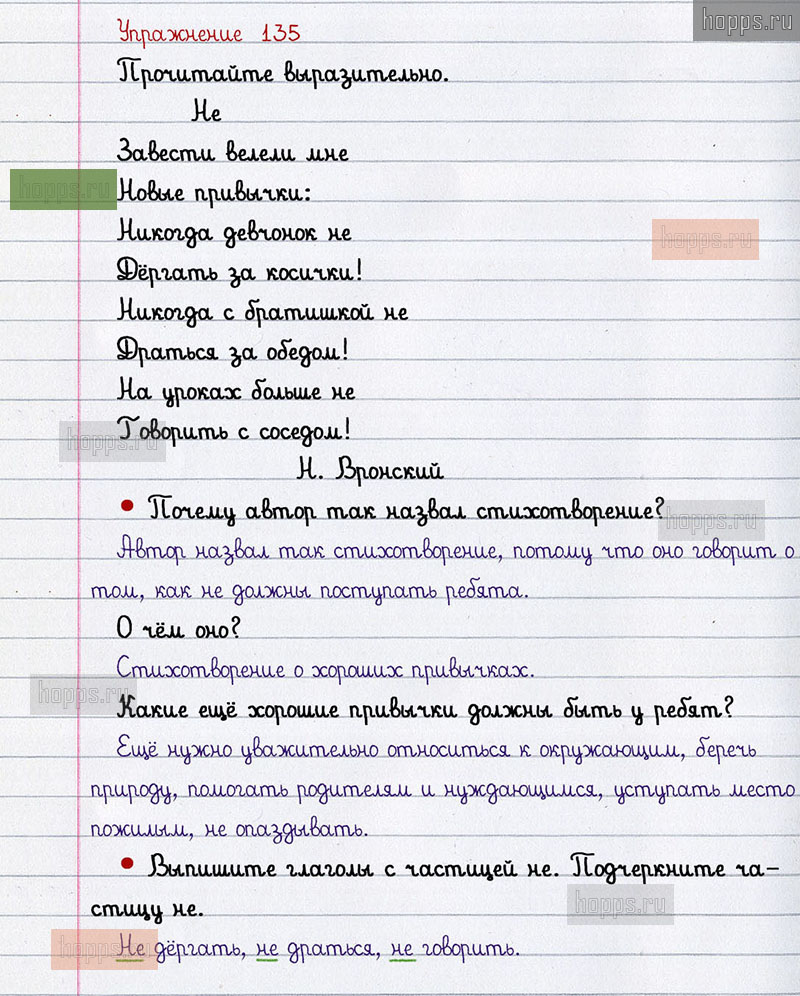 hopps.ru
Упражнение 135
Прочитайте выразительно.
Не
Завести велели мне
hopps.ru
Новые привычки:
Никогда девчонок не
hopps.ru
Дёргать за косички!
Никогда с братишкой не
Драться за обедом!
На уроках больше не
Говорить с соседом!
hopps.ru
Н. Вронский
• Почему автор так назвал стихотворение?
hopps.ru
Автор назвал так стихотворение, потому что оно говорит о
том, как не должны поступать ребята.
О чём оно?
Стихотворение о хороших привычках.
hopps.ru
Какие ещё хорошие привычки должны быть у ребят?
Ещё нужно уважительно относиться к окружающим, беречь
природу, помогать родителям и нуждающимся, уступать место
пожилым, не опаздывать.
• Выпишите глаголы с частицей не. Подчеркните ча-
стицу не.
hopps.ru
hopps.ru
Не дёргать, не драться, не говорить.